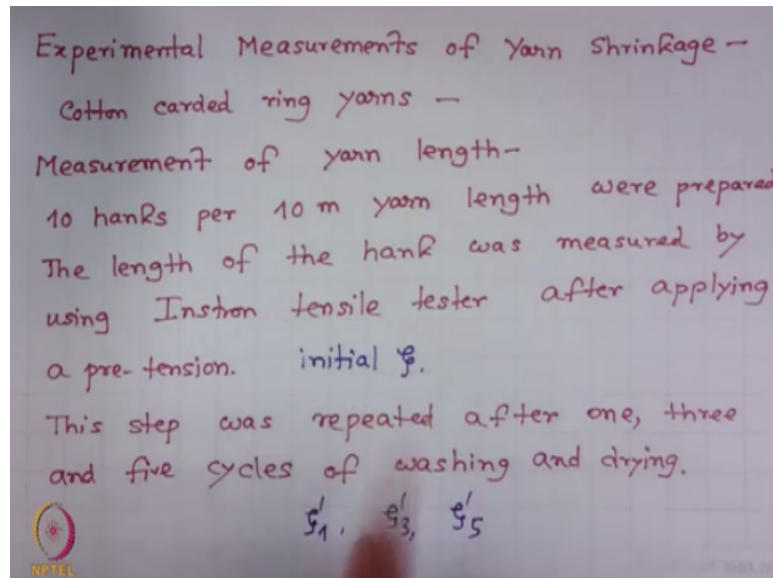 Experimental Measurements of Yarn Shrinkage -
Cotton carded ring yarns -
Measurement of yarn length -
10 hanks per 10 m yarn length were prepared
The length of the hank was measured by
using Instron tensile tester after applying
a pre-tension. initial ξ.
This step was repeated after one, three
and five cycles of washing and drying.
ξ'1, ξ'3, ξ'5
NPTEL